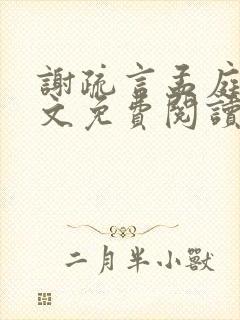 謝疏言孟庭
文免費閱讀
二月半小獸